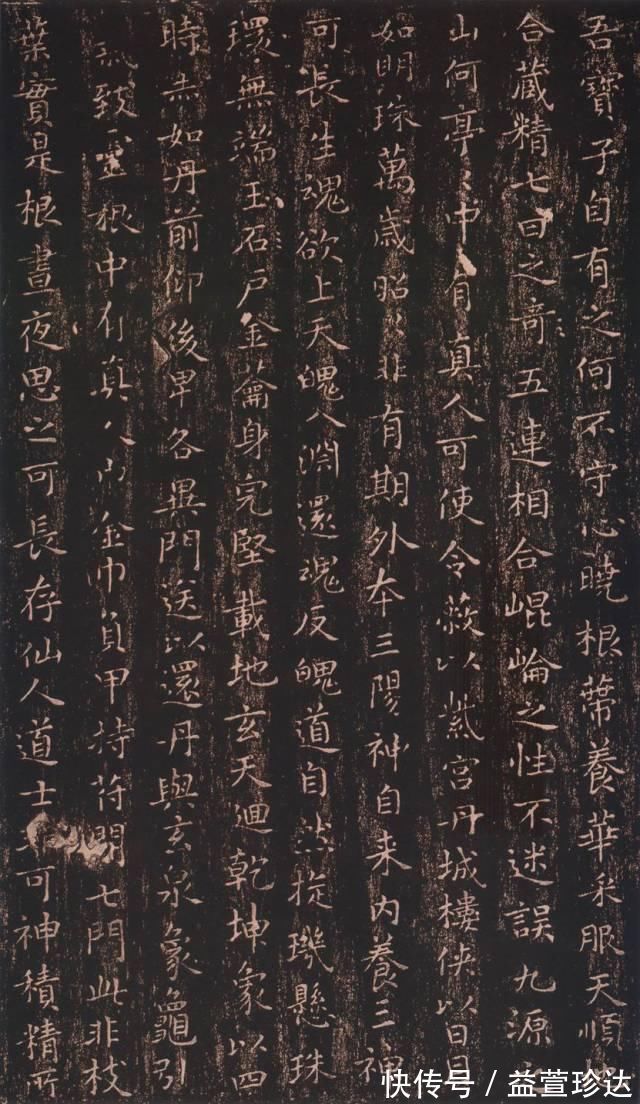 吾寶子自有之何不守心曉根蔕養華采服天順地
合蔵精七日之奇五連相合崐崘之性不迷誤九源之
山何亭〻中有真人可使令蔽以紫宫丹城樓侠以日月
如明珠萬歳昭〻非有期外夲三陽神自来内養三神
可長生魂欲上天魄入淵還魂反魄道自然㨔璣懸珠
環無端玉石戶金蘥身完堅載地玄天迴乾坤象以四
時赤如丹前仰後卑各異門送以還丹與玄泉象龜引
氣致靈根中有真人巾金巾負甲持苻開七門此非枝
葉實是根晝夜思之可長存仙人道士非可神積精所
快传号／益萱珍达